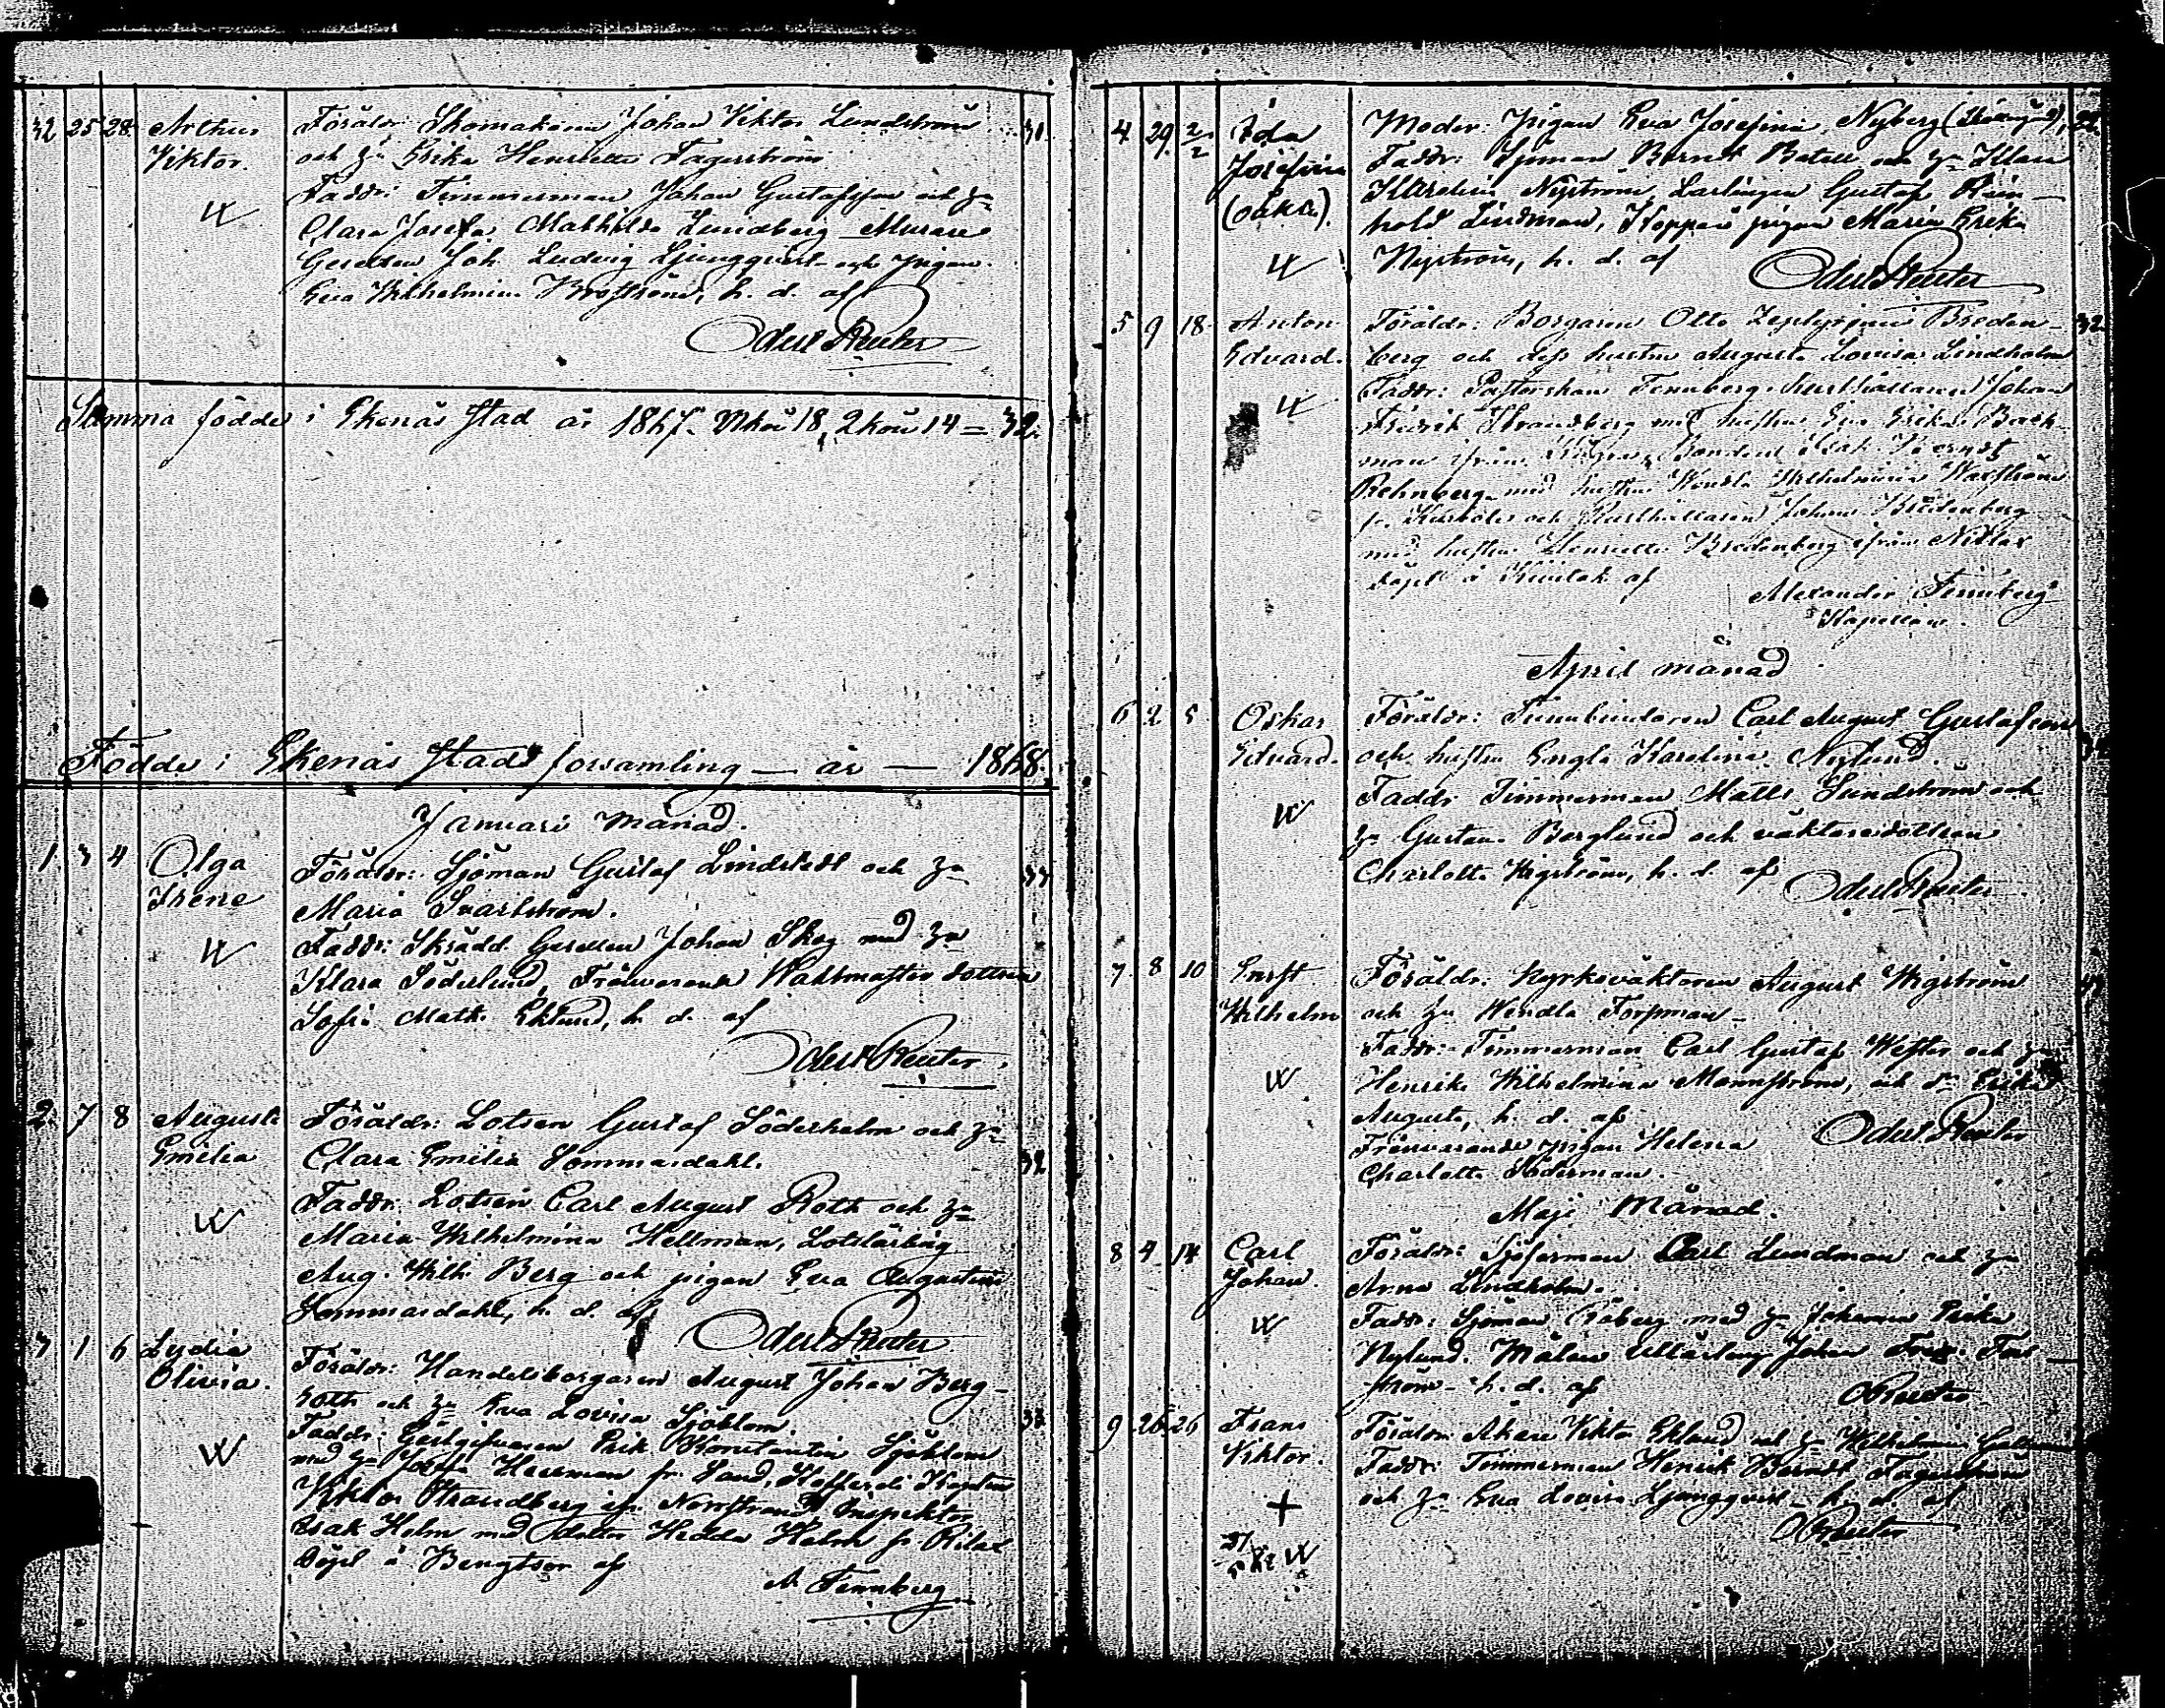 32 25 28 Arthur Viktor.
Föräldr: Skomakaren Johan Viktor Lindström 31.
och h:u Erika Henrietta Fagerström
Faddr: Timmerman Johan Gustafsson och h:u
Clara Josefa Mathilda Lundberg Murare
Gesellen Joh. Ludvig Ljungqvist och pigan
Eva Wilhelmina Broström, h. d. af
Odert Reuter
Summa födde i Ekenäs stad år 1867. Mkön 18, Qkön 14 = 32.
Födde i Ekenäs Stads församling — år — 1868.
Januari månad.
1. 3 4 Olga Irene
Föräldr: Sjöman Gustaf Lindstedt och h:u
Maria Svartström.
Faddr: Skrädd. Gesellen Johan Skog med h:u
Klara Söderlund, Frånvarande Waktmästar dottren
Sofia Math. Eklund, h. d. af
Odert Reuter.
2. 7 8 Augusta Emilia
Föräldr: Lotsen Gustaf Söderholm och h:u
Clara Emilia Sommardahl. 32
Faddr: Lotsen Carl August Roth och h:u
Maria Wilhelmina Hellman, Lotslärling
Aug. Wilh. Berg och pigan Eva Augustina
Sommardahl, h. d. af
Odert Reuter
3 1 6 Lydia Olivia.
Föräldr: Handelsborgaren August Johan Berg-
roth och h:u Eva Lovisa Sjöblom. 33.
Faddr: Erik Konstantin Sjöblom
med h:u Herrman fr. Sand, Kapten
Viktor Strandberg ifr. Norrstrand, Inspektor
Isak Holm med dotter Hedda Holm fr. Rilax
Döpt å Bengtsor af
A. Tennberg
4 29. 2/2 Ida Josefina (oäkta).
Moder: Pigan Eva Josefina Nyberg
Faddr: Sjöman Berndt och h:u Klara
Karolina Nyström, Lärlingen Gustaf Rein-
hold Lindman, pigan Maria Erika
Nyström, h. d. af
Odert Reuter
5 9 18. Anton Edvard.
Föräldr: Borgaren Otto Breden- 32
berg och dess hustru Augusta Lovisa Lindholm
Faddr: Pastorskan Tennberg. Johan
Fredrik Strandberg med hustru Eva Erika Back-
man ifrån Bonden Isak Berndt
Rehnberg med hustru Wendla Wilhelmina Waxström
fr. och Johan Bredenberg
med hustru Henrietta Bredenberg ifrån Nitlax
döpt å af
Alexander Tennberg
Kapellan.
April månad
6 2 5 Oskar Edvard.
Föräldr: Tunnbindaren Carl August Gustafsson
och hustru Engla Karolina Nylund.
Faddr: Timmerman Matts Sundström och
h:u Gustava Berglund och väktaredottren
Charlotta Wigström, h. d. af
Odert Reuter
7. 8 10 Ernst Wilhelm
Föräldr: Kyrkoväktaren August Wigström
och h:u Wendla Forsman —
Faddr: Timmerman Carl Gustaf Wester och h:u
Henrika Wilhelmina Mannström, och d:r Erika
Augusta, h. d. af
Odert Reuter
Frånvarande pigan Helena
Charlotta Söderman.
Maji Månad.
8 4 14 Carl Johan.
Föräldr: Carl Lundman och h:u
Anna Lindholm.
Faddr: Sjöman med h:u Johanna Erika
Nylund. Målare Johan
ström h. d. af
O Reuter
9 26 26 Frans Viktor.
Föräldr: Åkare Viktor Eklund och h:u Wilhelmina
Faddr: Timmerman Henrik Berndt Fagerström
och h:u Eva Lovisa Ljungqvist — h. d. af
O Reuter